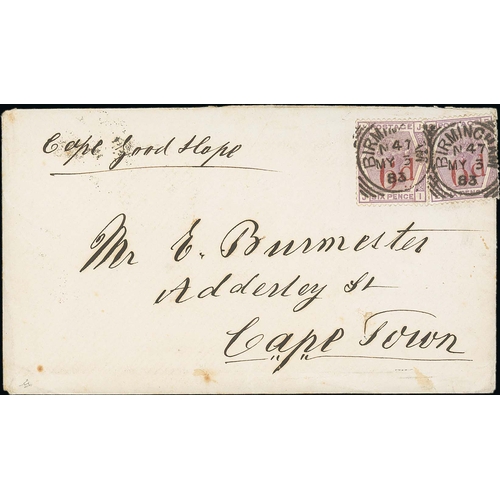 Cape Good Hope
BIRMINGHAM
N47
MY 3
83
6d
SIX PENCE
J
I
BIRMINGHAM
N47
MY 3
83
6d
SIX PENCE
Mr E. Burmester
Adderley St
Cape Town